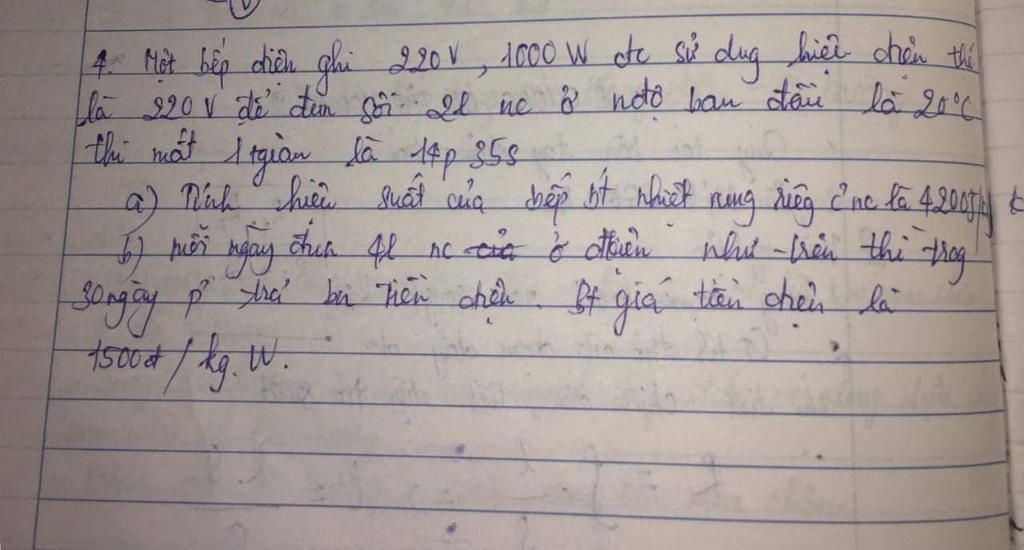 4. Một bếp điện ghi 220V, 1000W đc sử dug hiệu điện thế
là 220V để đun sôi 2l nc ở nđộ ban đầu là 20°C
thì mất 1 tgian là 14p 35s
a) Tính hiệu suất của bếp bt nhiệt rung riêg c nc là 4200J/kg k
b) mỗi ngày đun 4l nc ở đkiện như trên thì trog
30ngày p trả bn tiền điện. Bt giá tiền điện là
1500đ/kg.W.